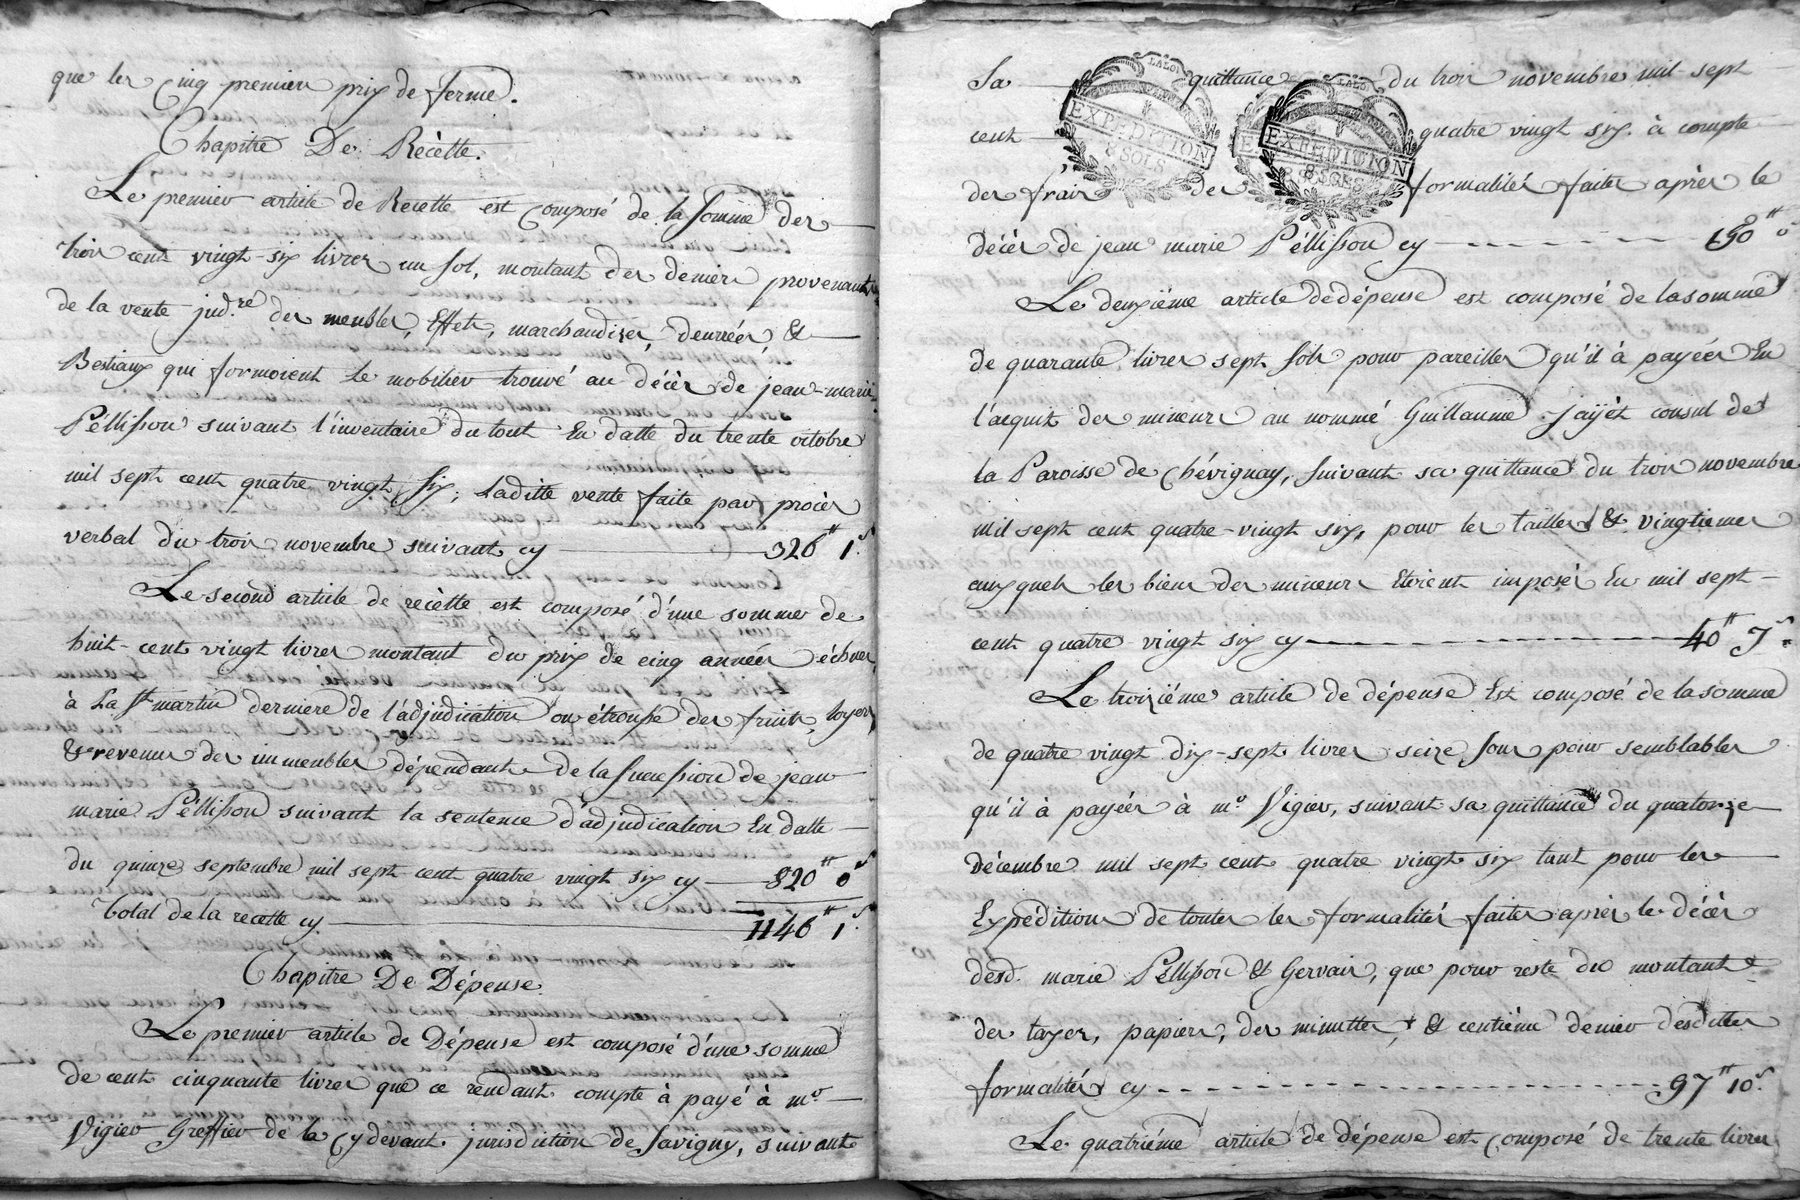 que les cinq premiers prix de ferme.
Chapitre De Recètte.
Le premier article de Recette est composé de la somme des
trois cent vingt-six livres un sol, montant des deniers provenants
de la vente jud.re des meubles, Effets, marchandises, denrées, &
Bestiaux qui formoient le mobilier trouvé au décès de jean-marie
Péllisson suivant l'inventaire du tout En datte du trente octobre
mil sept cent quatre vingt six; Laditte vente faite par procès
verbal du trois novembre suivant cy 326tt 1s.
Le second article de recètte est composé d'une somme de
huit-cent vingt livres montant du prix de cinq années échues
à La St martin derniere de l'adjudication ou étrousse des fruits, loyers
& revenus des immeubles dépendants de la succession de jean
marie Péllisson suivant la sentence d'adjudication En datte
du quinze septembre mil sept cent quatre vingt six cy 820tt 0s
Total de la recette cy 1146tt 1s.
Chapitre De Dépense.
Le premier article de Dépense est composé d'une somme
de cent cinquante livres que ce rendant compte à payé à mo.
Vigier Greffier de la cy devant jurisdiction de Savigny, suivant
Sa quittance du trois novembre mil sept
cent quatre vingt six à compte
des frais des formalités faites après le
décès de jean marie Péllisson cy 150tt 0s
LALOI
EXPEDITION
8 SOLS
LALOI
EXPEDITION
8 SOLS
Le deuxiéme article de dépense est composé de la somme
de quarante livres sept sols pour pareilles qu'il à payées En
l'acquit des mineurs au nommé Guillaume Jaÿet consul de
la Paroisse de Chévignay, suivant sa quittance du trois novembre
mil sept cent quatre-vingt six, pour les tailles & vingtiemes
auxquels les biens des mineurs Etoient imposés En mil sept
cent quatre vingt six cy 40tt 7s
Le troiziéme article de dépense Est composé de la somme
de quatre vingt dix-sept livres seize sous pour semblables
qu'il à payées à mo. Vigier, suivant sa quittance du quatorze
décembre mil sept cent quatre vingt six tant pour les
Expéditions de toutes les formalités faites après le décès
desd. marie Péllisson & Gervais, que pour reste du montant
des taxes, papiers, des minuttes, & centième denier desdittes
formalités cy 97tt 10s.
Le quatriéme article de dépense est composé de trente livres